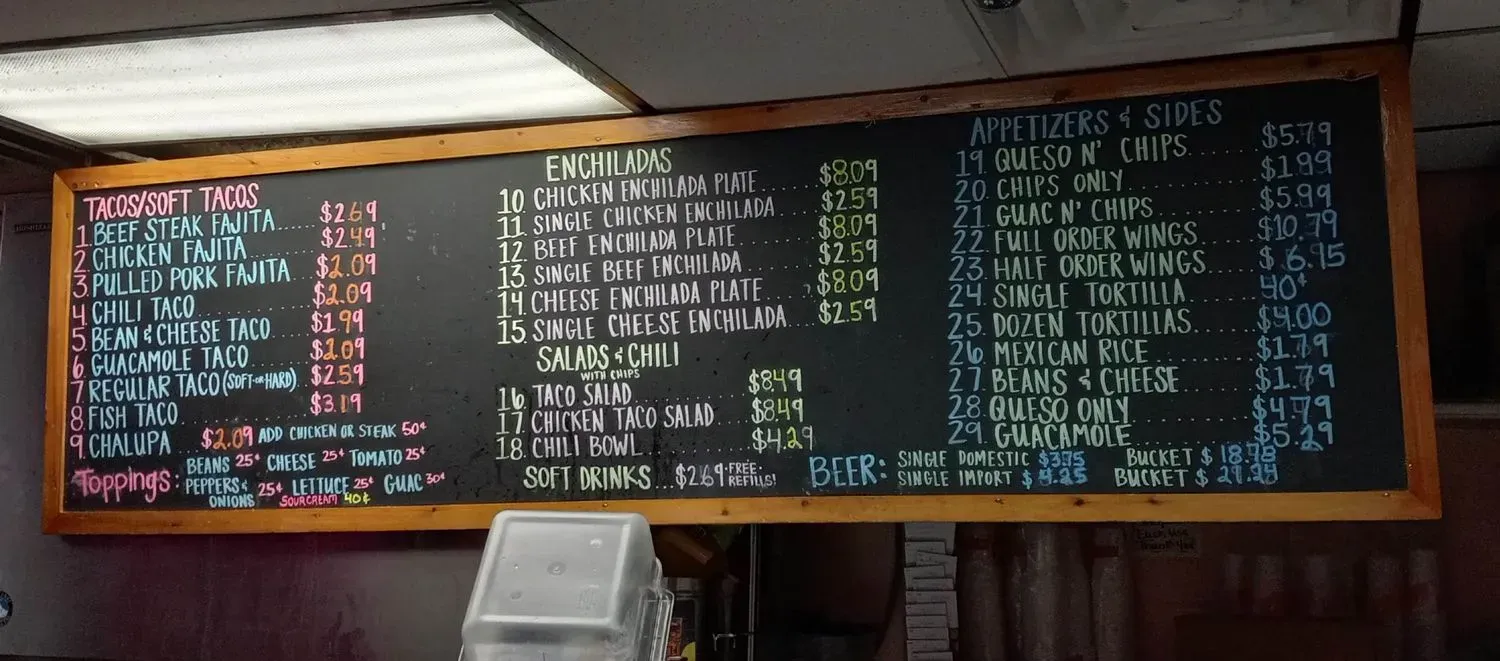 TACOS/SOFT TACOS
1. BEEF STEAK FAJITA..... $2.69
2. CHICKEN FAJITA......... $2.49
3. PULLED PORK FAJITA... $2.09
4. CHILI TACO............. $2.09
5. BEAN & CHEESE TACO..... $1.99
6. GUACAMOLE TACO........ $2.09
7. REGULAR TACO (SOFT-OR-HARD) $2.59
8. FISH TACO.............. $3.09
9. CHALUPA $2.09 ADD CHICKEN OR STEAK 50¢
Toppings: BEANS 25¢ CHEESE 25¢ TOMATO 25¢
PEPPERS & ONIONS 25¢ LETTUCE 25¢ GUAC 30¢
SOUR CREAM 40¢
ENCHILADAS
10. CHICKEN ENCHILADA PLATE...... $8.09
11. SINGLE CHICKEN ENCHILADA..... $2.59
12. BEEF ENCHILADA PLATE......... $8.09
13. SINGLE BEEF ENCHILADA........ $2.59
14. CHEESE ENCHILADA PLATE....... $8.09
15. SINGLE CHEESE ENCHILADA... $2.59
SALADS & CHILI
WITH CHIPS
16. TACO SALAD........... $8.49
17. CHICKEN TACO SALAD..... $8.49
18. CHILI BOWL........... $4.29
SOFT DRINKS... $2.69 •FREE•
REFILLS!
APPETIZERS & SIDES
19. QUESO N' CHIPS........ $5.79
20. CHIPS ONLY........... $1.89
21. GUAC N' CHIPS......... $5.99
22. FULL ORDER WINGS..... $10.79
23. HALF ORDER WINGS..... $6.95
24. SINGLE TORTILLA...... 40¢
25. DOZEN TORTILLAS...... $4.00
26. MEXICAN RICE......... $1.79
27. BEANS & CHEESE....... $1.79
28. QUESO ONLY........... $4.79
29. GUACAMOLE............ $5.29
BEER: SINGLE DOMESTIC $3.75 BUCKET $18.78
SINGLE IMPORT $ BUCKET $